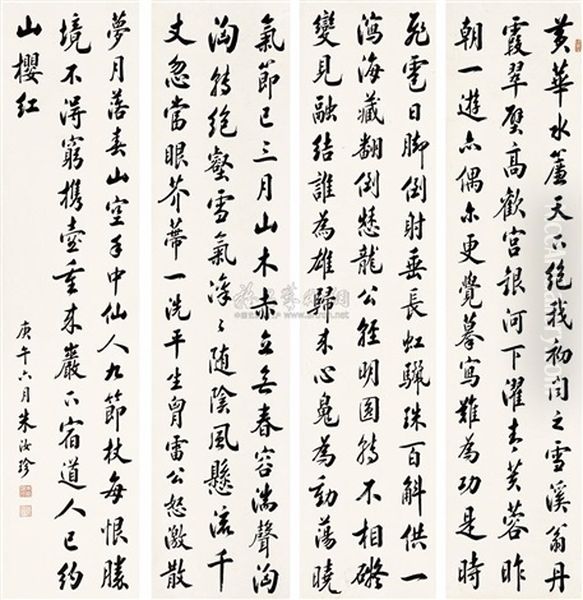 黃華水簾天下絕我初聞之雪溪翁丹
霞翠壁高歡宮銀河下濯青芙蓉昨
朝一遊亦偶尔更覺摹寫難為功是時
氣節已三月山木赤立無春容湍聲洶
洶轉絕壑雪氣凜凜隨陰風懸流千
丈忽當眼芥蒂一洗平生胷雷公怒激散
飛雹日腳倒射垂長虹驪珠百斛供一
瀉海藏翻倒愁龍公輕明圓轉不相礙
變見融結誰為雄歸來心魄為動蕩曉
夢月落春山空手中仙人九節杖每恨勝
境不得窮攜壺重來巖下宿道人已約
山櫻紅
庚午六月朱汝珍